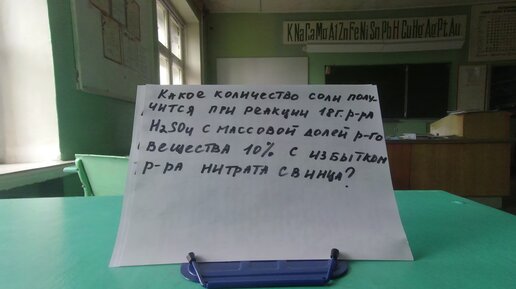 K Na Ca Mg Al Zn Fe Ni Sn Pb H Cu Hg Ag Pt Au
Какое количество соли полу-
чится при реакции 18г. р-ра
H₂SO₄ с массовой долей р-го
вещества 10% с избытком
р-ра нитрата свинца?